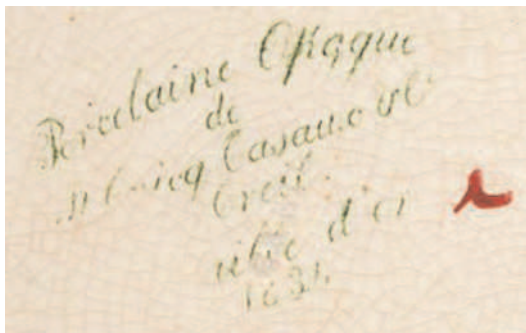 Porcelaine Opaque
de
St Cricq Casaux & Cie
Creil.
d'or